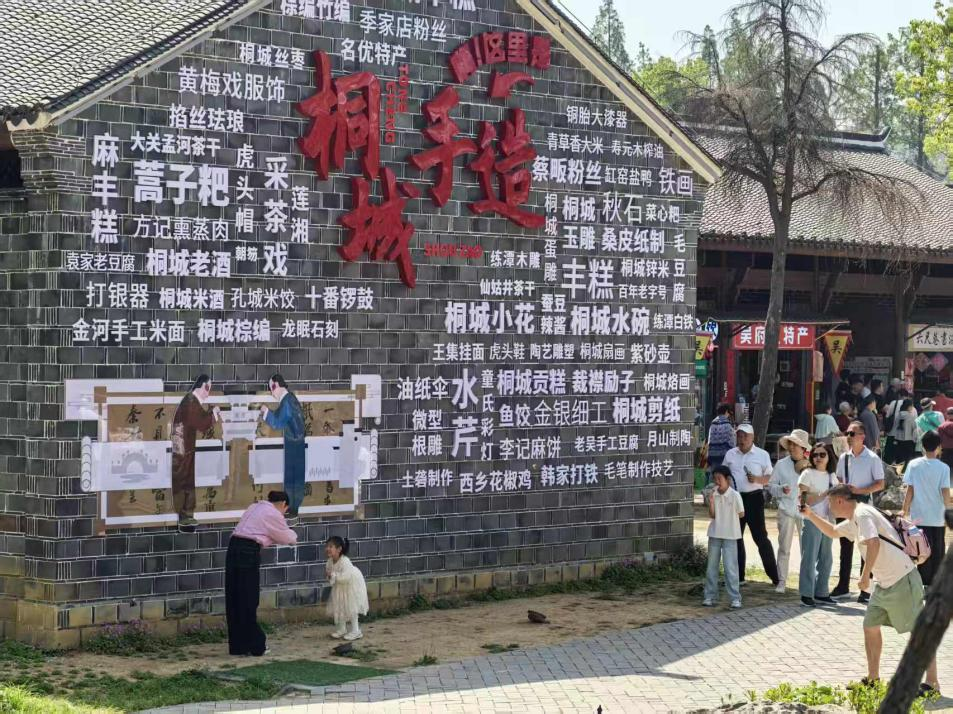 棕编竹编
季家店粉丝
名优特产
桐城丝枣
黄梅戏服饰
掐丝珐琅
大关孟河茶干
麻丰糕
蒿子粑
虎头帽
采茶戏
莲湘
方记熏蒸肉
袁家老豆腐
桐城老酒
朝笏
打银器
桐城米酒
孔城米饺
十番锣鼓
金河手工米面
桐城棕编
龙眠石刻
桐城
TONG CHENG
手造
SHOU ZAO
铜胎大漆器
青草香大米
寿元木榨油
蔡畈粉丝
缸窑盐鸭
铁画
桐城蛋雕
桐城
秋石
菜心粑
玉雕
桑皮纸制
毛豆腐
练潭木雕
丰糕
桐城锌米
百年老字号
仙姑井茶干
蚕豆辣酱
桐城小花
桐城水碗
练潭白铁
王集挂面
虎头鞋
陶艺雕塑
桐城扇画
紫砂壶
油纸伞
水芹
童氏彩灯
桐城贡糕
裁襟励子
桐城烙画
微型根雕
鱼饺
金银细工
桐城剪纸
李记麻饼
老吴手工豆腐
月山制陶
土砻制作
西乡花椒鸡
韩家打铁
毛笔制作技艺
吴府特产
吴
六尺巷